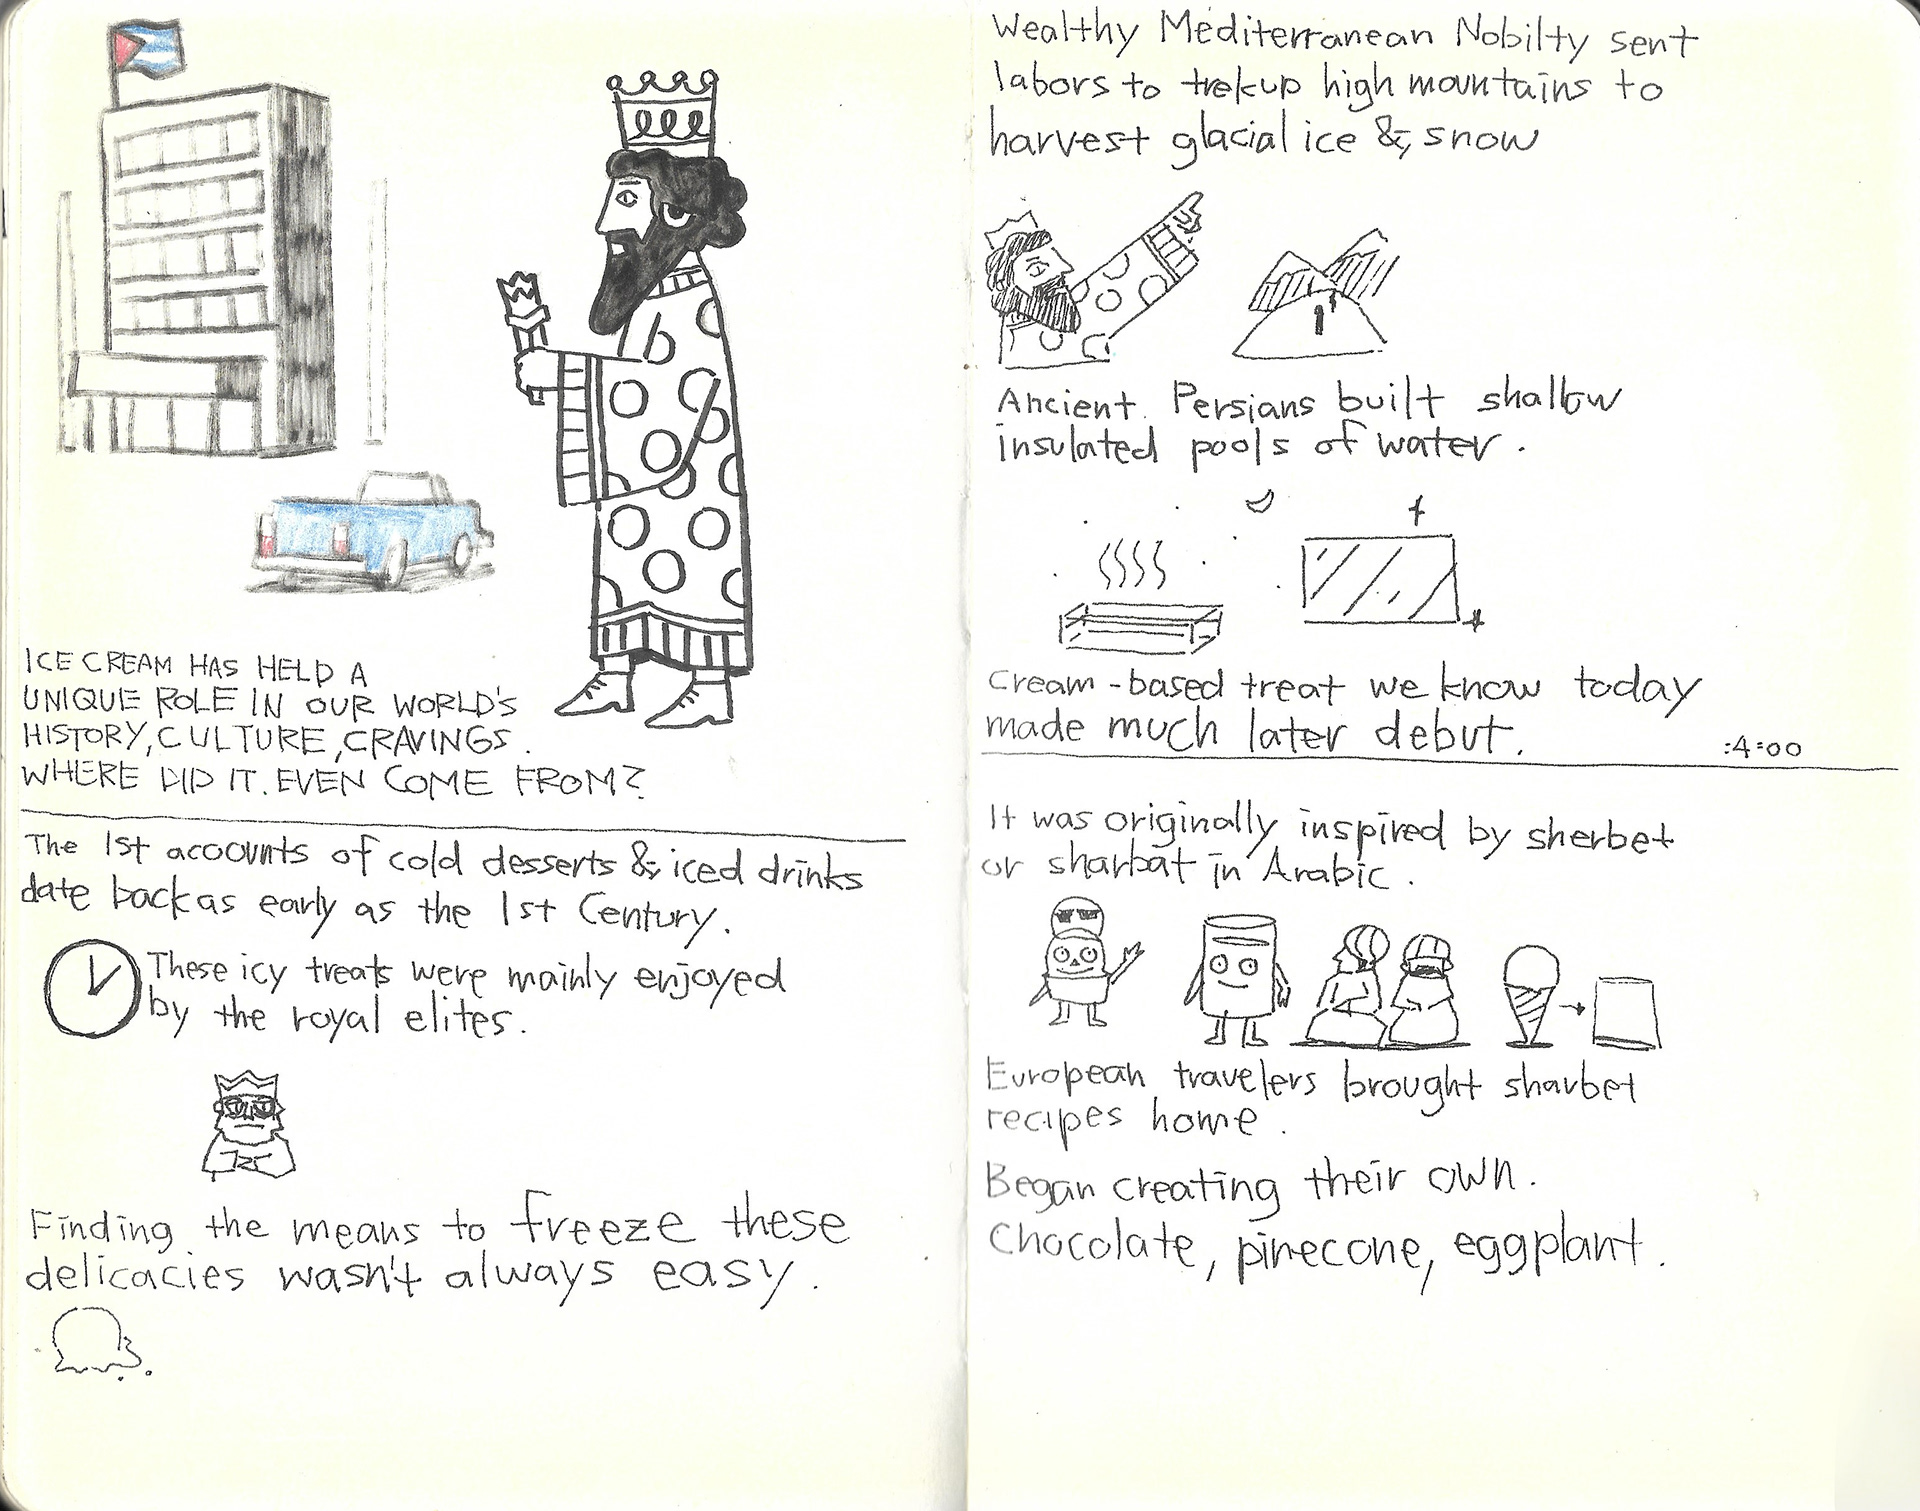 ICE CREAM HAS HELD A
UNIQUE ROLE IN OUR WORLD'S
HISTORY, CULTURE, CRAVINGS.
WHERE DID IT. EVEN COME FROM?
The 1st acoounts of cold desserts & iced drinks
date back as early as the 1st Century.
These icy treats were mainly enjoyed
by the royal elites.
Finding the means to freeze these
delicacies wasn't always easy.
Wealthy Mediterranean Nobilty sent
labors to trek up high mountains to
harvest glacial ice & snow
Ancient. Persians built shallow
insulated pools of water.
Cream-based treat we know today
made much later debut.
:4:00
It was originally inspired by sherbet
or sharbat in Arabic.
European travelers brought sharbet
recipes home.
Began creating their own.
Chocolate, pinecone, eggplant.